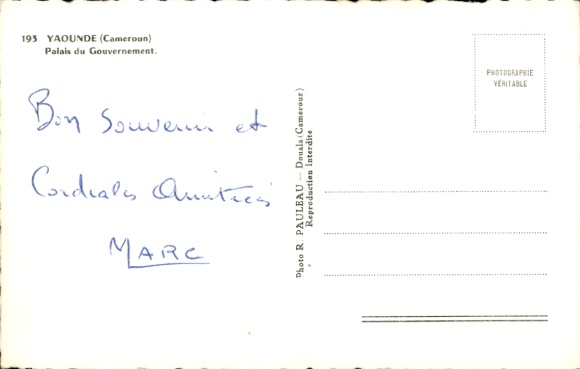 193 YAOUNDE (Cameroun)
Palais du Gouvernement.
Bon Souvenir et
Cordiales Amitiés
MARC
Photo R. PAULEAU — Douala (Cameroun)
Reproduction Interdite
PHOTOGRAPHIE
VÉRITABLE